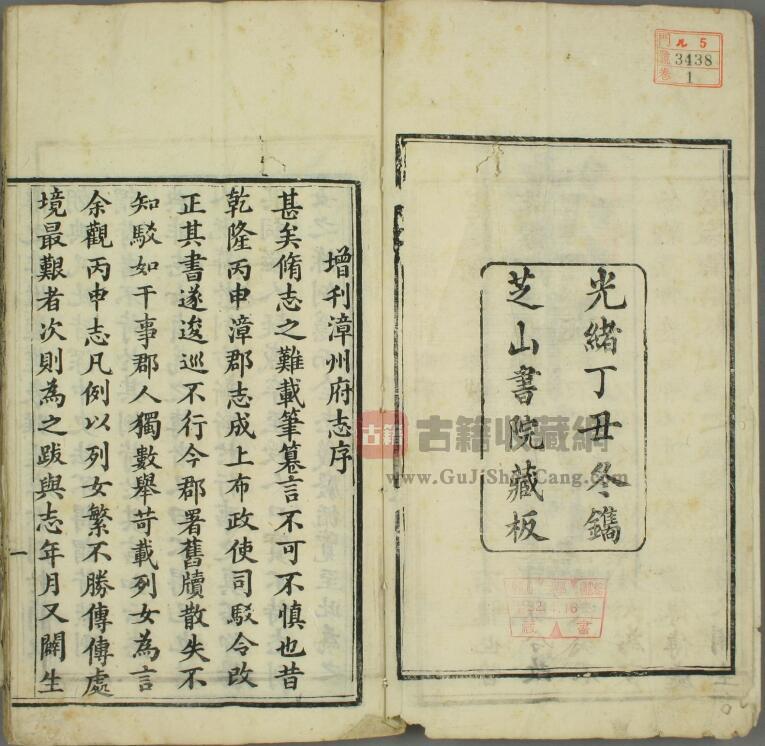 門 ル 5
號 3438
卷 1
光緒丁丑冬鐫
芝山書院藏板
書 藏
增刊漳州府志序
甚矣脩志之難載筆纂言不可不慎也昔
乾隆丙申漳郡志成上布政使司駁令改
正其書遂逡巡不行今郡署舊牘散失不
知駁如干事郡人獨數舉苛載列女為言
余觀丙申志凡例以列女繁不勝傳傳處
境最艱者次則為之跋與志年月又闢生
一
古籍 古籍收藏網
www.GuJiShouCang.com